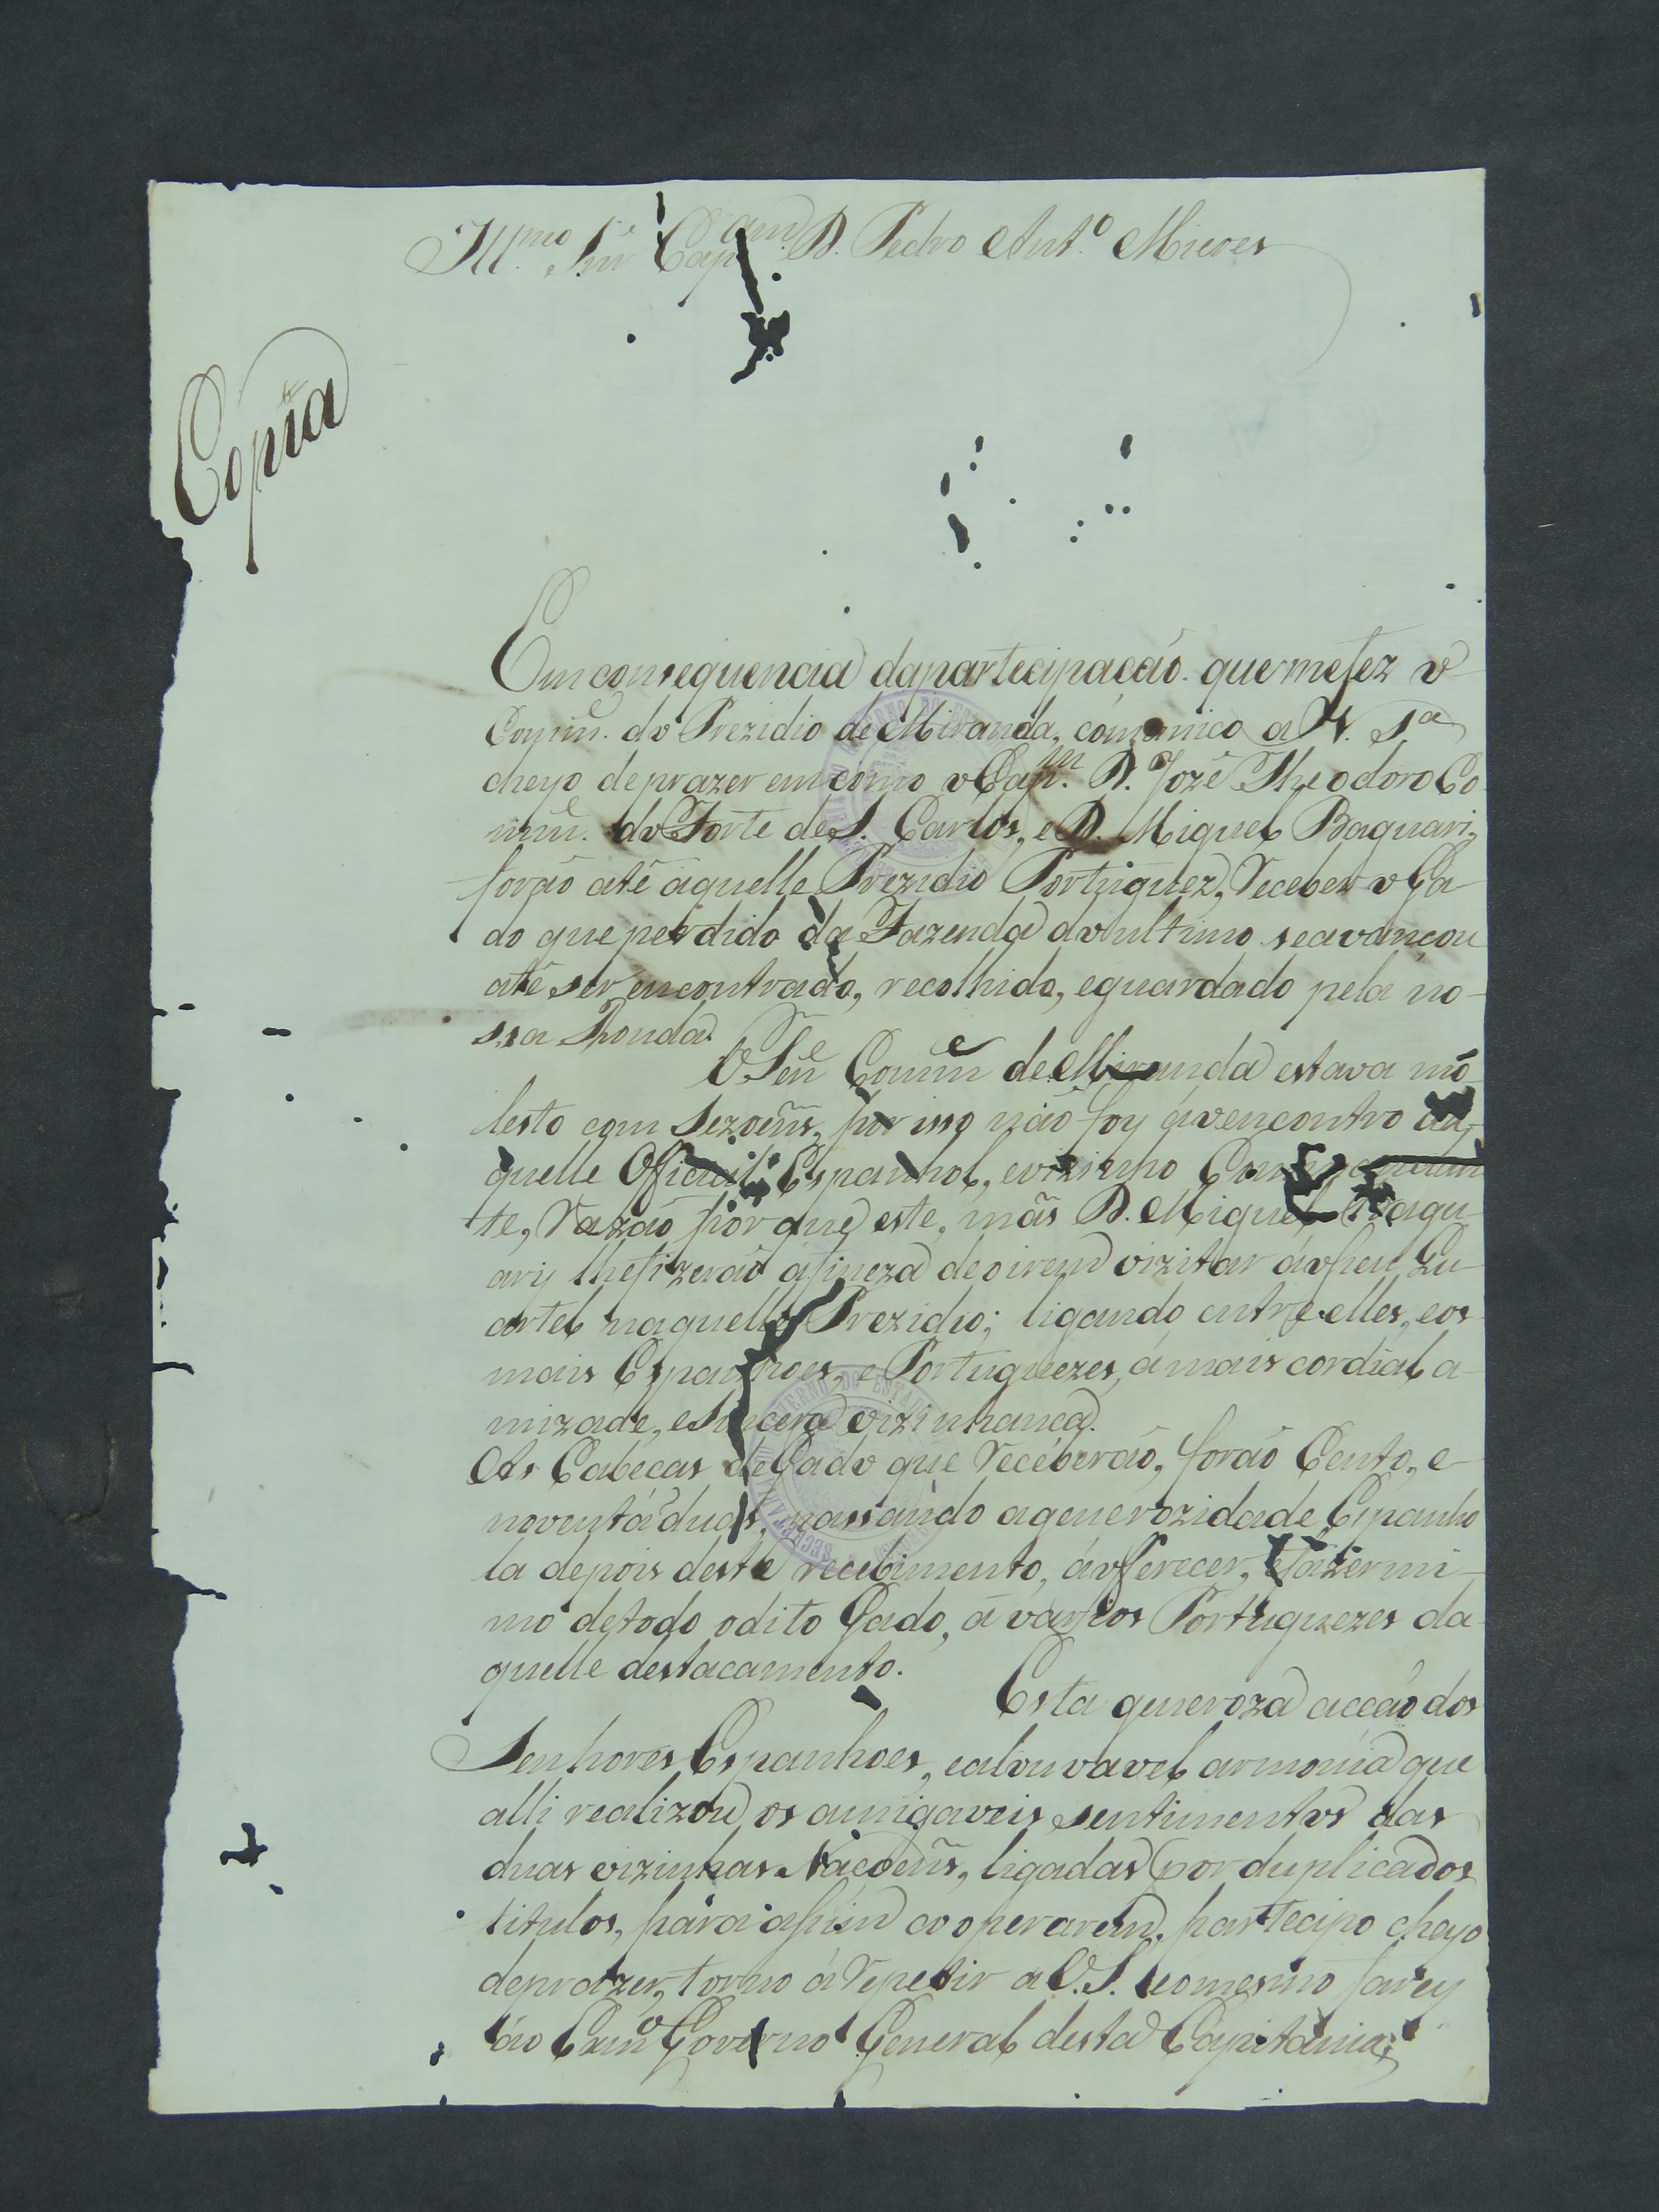 Ill.mo Snr. Cap.am D. Pedro Ant.º Mieres
Copia
Em consequencia daparticipação que mefez o
Comm.e do Prezidio de Miranda, cómonico a V. S.a
cheyo deprazer emcomo o Cap.m D. Jozé Theodoro Co-
mm.e do Forte de S. Carlos, e D. Miguel Baguari,
forão até aquelle Prezidio Portuguez, receber o Ga-
do que perdido da Fazenda do ultimo seavançou
até ser encontrado, recolhido, eguardado pela no-
ssa Ronda.
O Senr Comm.e de Miranda estava mo-
lesto com Sezoens, por isso não foy áoencontro da-
quelle Official Espanhol, evizinho Commandan
te, razão por que este, mas D. Miguel Bagu-
ary lhefizerão afineza deoirem vizitar áoseu Qu-
artel naquelle Prezidio; ligando entre elles, eos
mais Espanhoes, e Portuguezes, a mais cordial a-
mizade, esincera vizinhança.
As Cabeças deGado que receberão, forão Cento, e
noventa e duas, passando agenerozidade Espanho
la depois deste recebimento, áofferecer, efazer mi-
mo detodo odito Gado, á varios Portuguezes da-
quelle destacamento.
Esta generoza acção dos
Senhores Espanhoes, ealouvavel armonia que
alli realizou os amigaveis sentimentos das
duas vizinhas Naçoens, ligadas por duplicados
titulos, para assim cooperarem, partecipo cheyo
deprazer, torno á repetir a V. S. eomesmo farey
áo Exm.º Governo General desta Capitania;